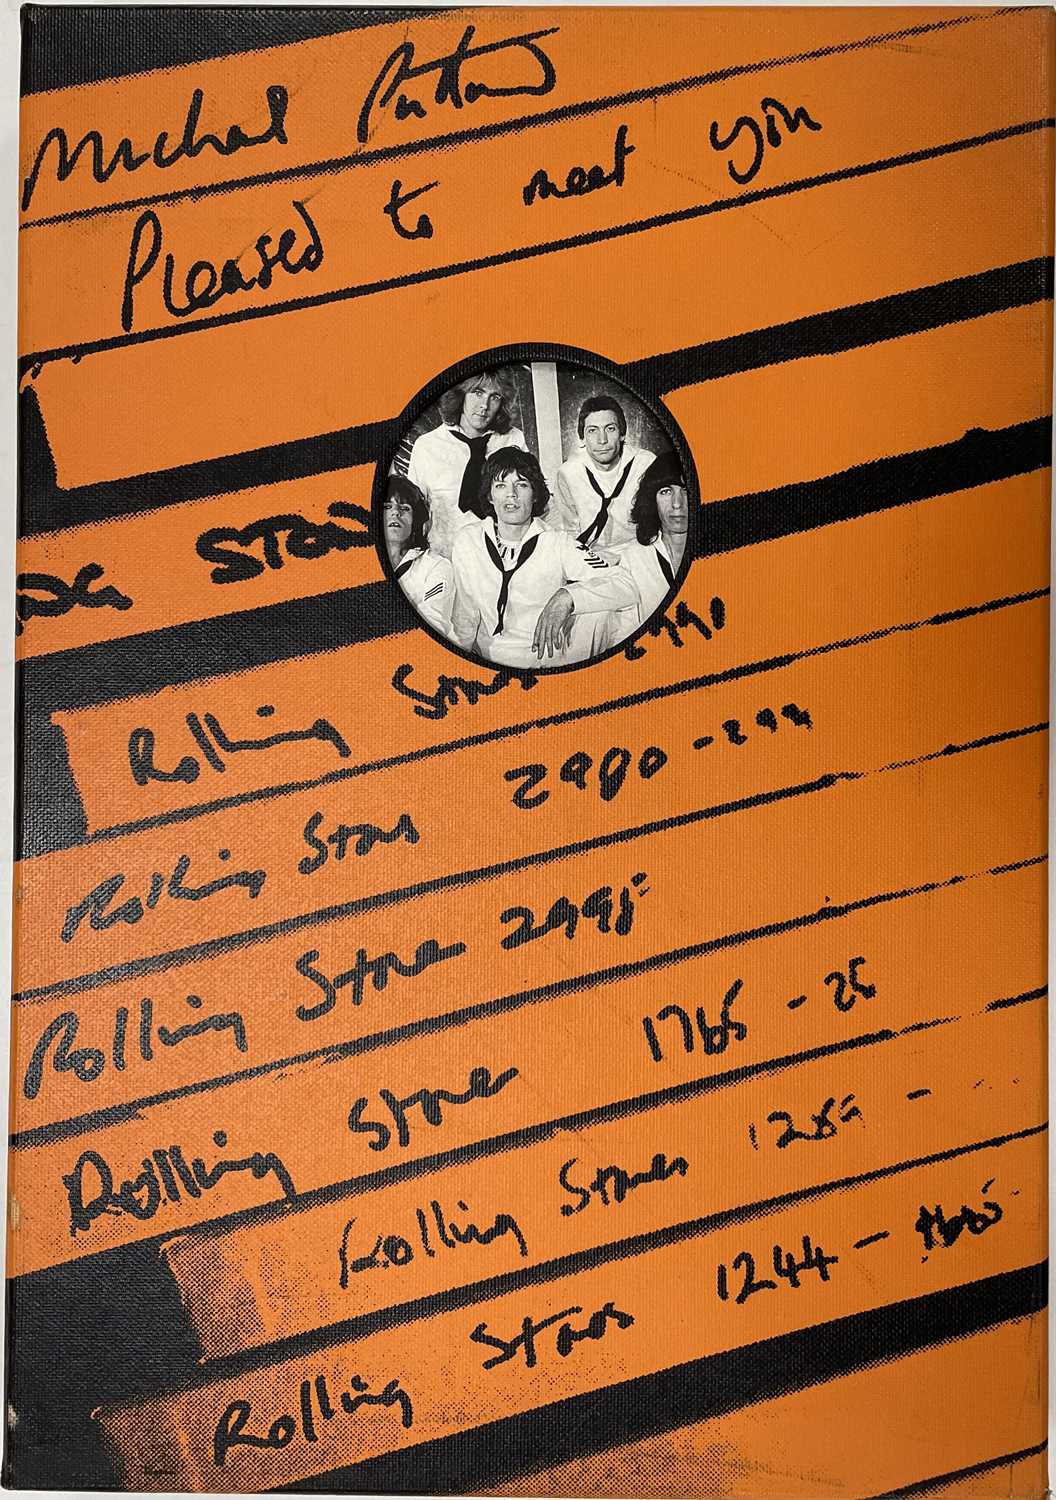 Michael Putland
Pleased to meet you
Rolling Stones 2990
Rolling Stones 2980 - 299
Rolling Stone 2995
Rolling Stone 1765 - 25
Rolling Stones 1289 -
Rolling Stones 1244 -